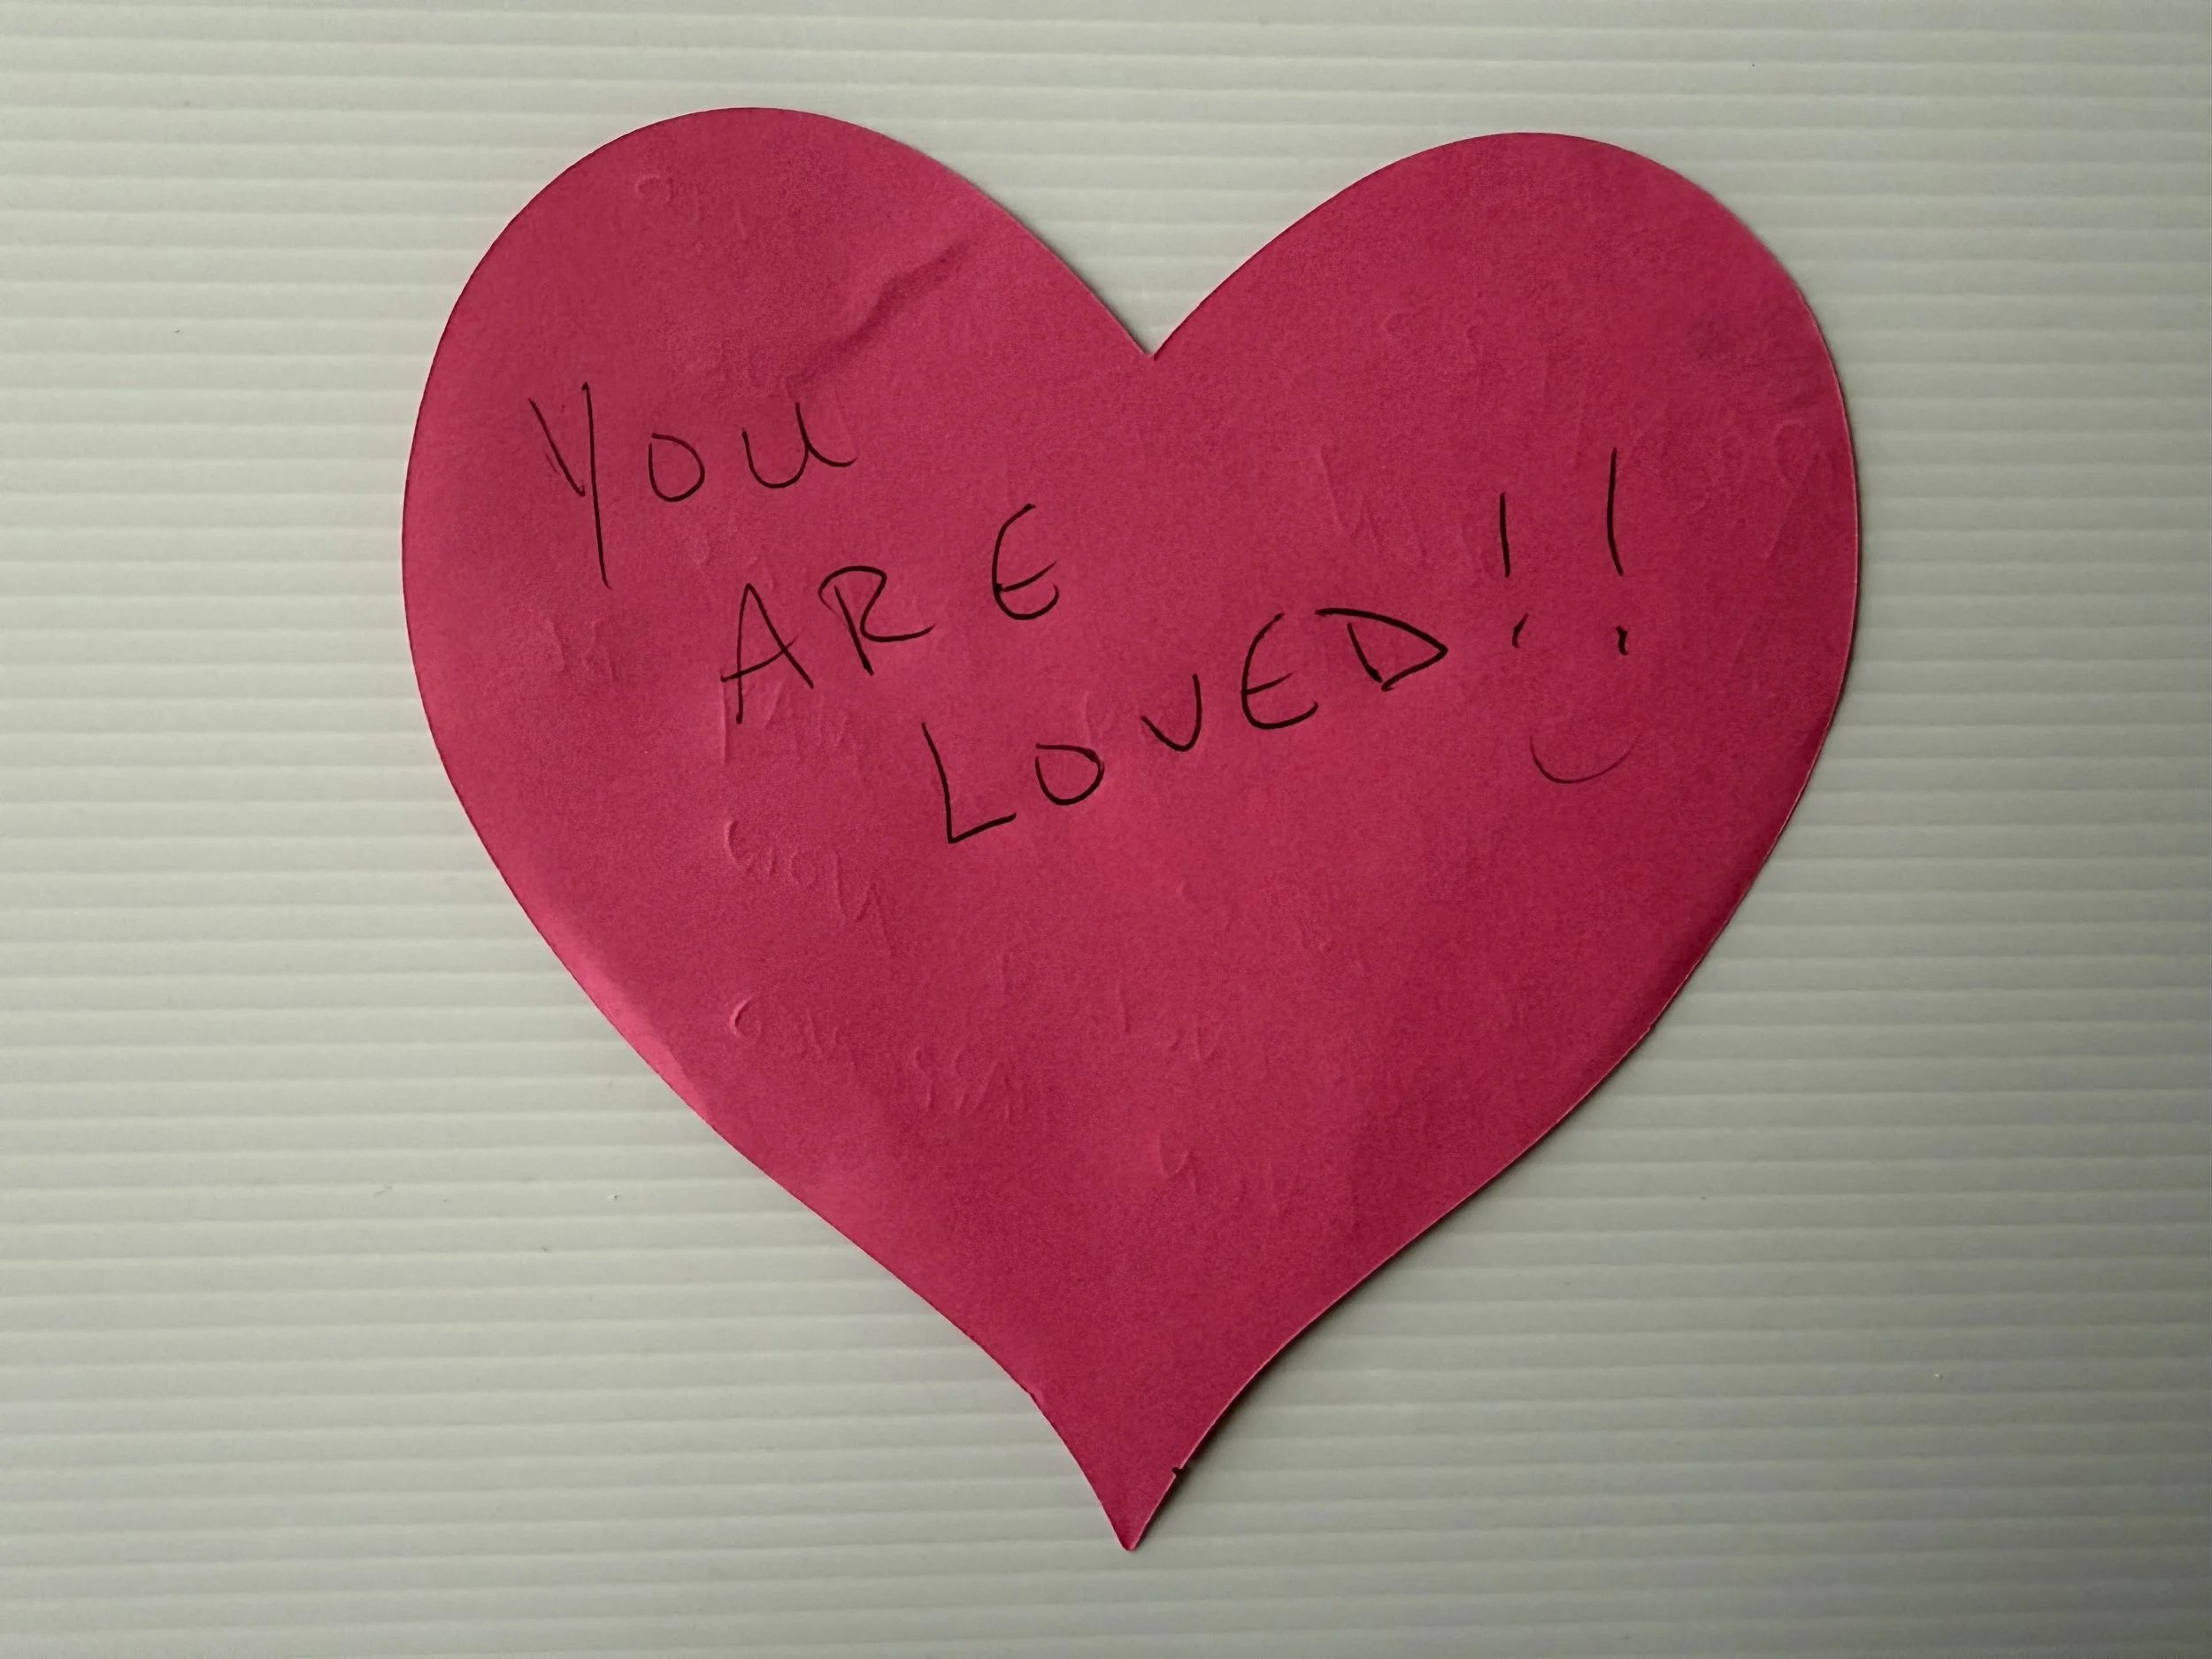 YOU
ARE
LOVED!!